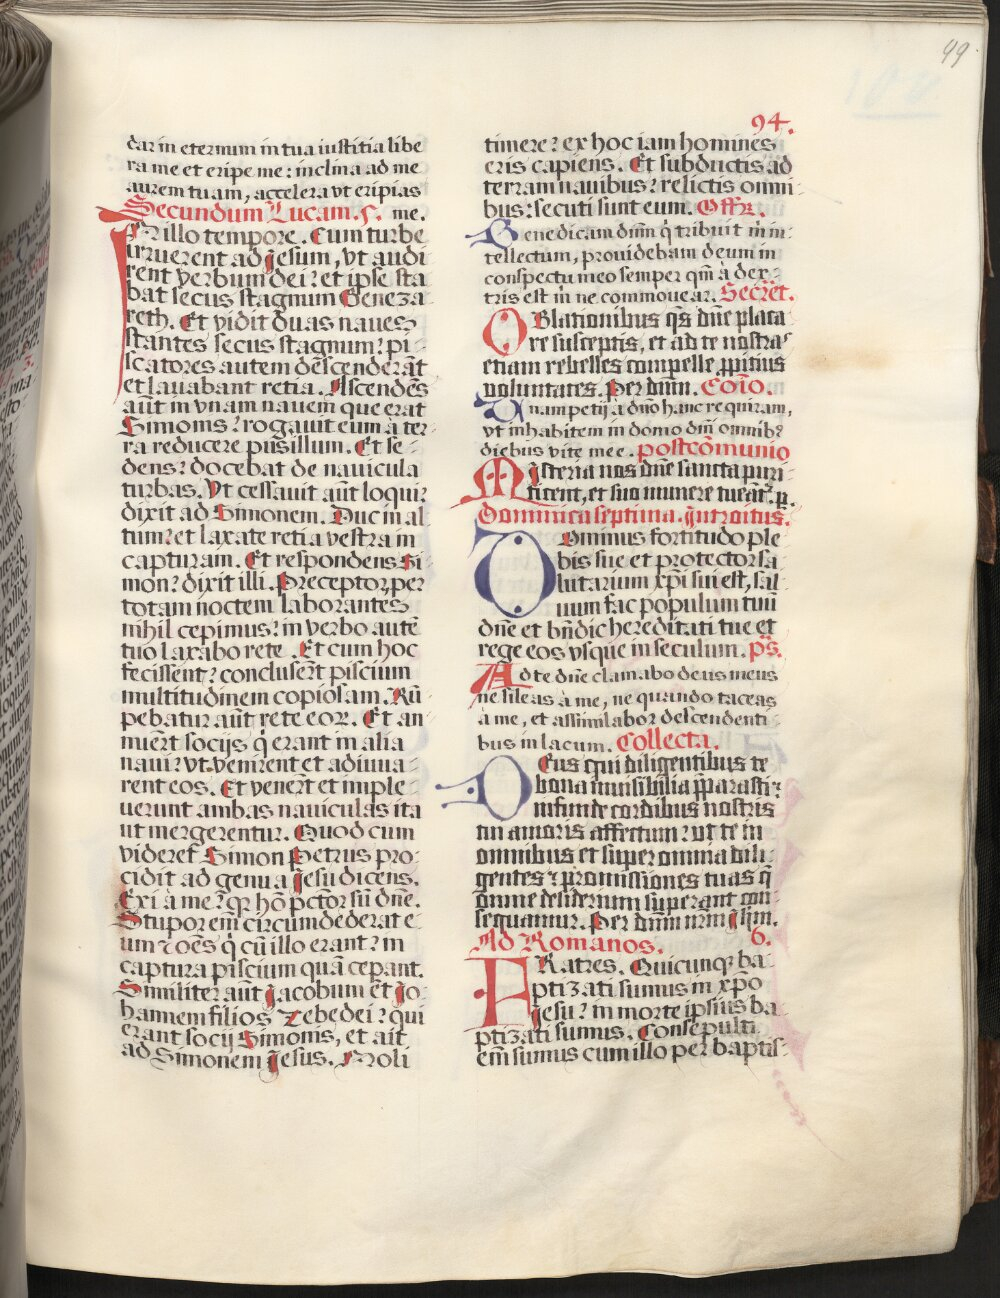 99
94.
dar in eternum in tua iustitia libe
ra me et eripe me: inclina ad me
aurem tuam, accelera vt eripias
Secundum Lucam. 5. me.
IN illo tempore. Cum turbe
irruerent ad Jesum, vt audi
rent verbum dei? et ipse sta
bat secus stagnum Geneza
reth. Et vidit duas naues
stantes secus stagnum? pi
scatores autem descenderāt
et lauabant retia. Ascendēs
aūt in vnam nauem que erat
Simonis? rogauit eum à ter
ra reducere pusillum. Et se
dens? docebat de nauicula
turbas. Vt cessauit aūt loqui?
dixit ad Simonem. Duc in al
tum? et laxate retia vestra in
capturam. Et respondens Si
mon? dixit illi. Preceptor, per
totam noctem laborantes
nihil cepimus? in verbo autē
tuo laxabo rete. Et cum hoc
fecissent? cōcluserūt piscium
multitudinem copiosam. Rū
pebatur aūt rete eor. Et an
nuerūt socijs q̄ erant in alia
naui? vt venirent et adiuua
rent eos. Et venerūt et imple
uerunt ambas nauiculas ita
ut mergerentur. Quod cum
videret Simon Petrus pro
cidit ad genua Jesu dicens.
Exi à me? qꝫ hō pctor sū dñe.
Stupor em̄ circumdederat e
um ⁊ oēs q̄ cū illo erant? in
captura piscium quā ceperant.
Similiter aūt Jacobum et Jo
hannem filios Zebedei? qui
erant socij Simonis, et ait
ad Simonem Jesus. Noli
timere? ex hoc iam homines
eris capiens. Et subductis ad
terram nauibus? relictis omni
bus: secuti sunt eum. Offr̄.
Benedicam dñm q̄ tribuit m̄ in
tellectum, prouidebam deum in
conspectu meo semper qm̄ à dex
tris est m̄ ne commouear. Secrēt.
OBlationibus qs̄ dñe placa
re susceptis, et ad te nostras
etiam rebelles compelle ꝓpitius
voluntates. Per dñm. Cōio.
Vnam petij à dño hanc requiram,
vt inhabitem in domo dñi omnibꝫ
diebus vite mee. postcōmunio
Misteria nos dñe sancta puri
ficent, et suo munere tueāt. p.
Dominica septima. Introitus.
Dominus fortitudo ple
bis sue et protector sa
lutarium xp̄i sui est, sal
uum fac populum tuū
dñe et bn̄dic hereditati tue et
rege eos vsque in seculum. ps.
Ad te dñe clamabo deus meus
ne sileas à me, ne quando taceas
à me, et assimilabor descendenti
bus in lacum. Collecta.
DEus qui diligentibus te
bona inuisibilia p̄parasti?
infunde cordibus nostris
tui amoris affectum? ut te in
omnibus et super omnia dili
gentes ⁊ promissiones tuas q̄
omne desiderium superant con
sequamur. Per dñm nrm̄ Jhm.
Ad Romanos. 6.
FRatres. Quicunqꝫ ba
ptizati sumus in xp̄o
Jesu? in morte ipsius ba
ptizati sumus. Consepulti
em̄ sumus cum illo per baptis